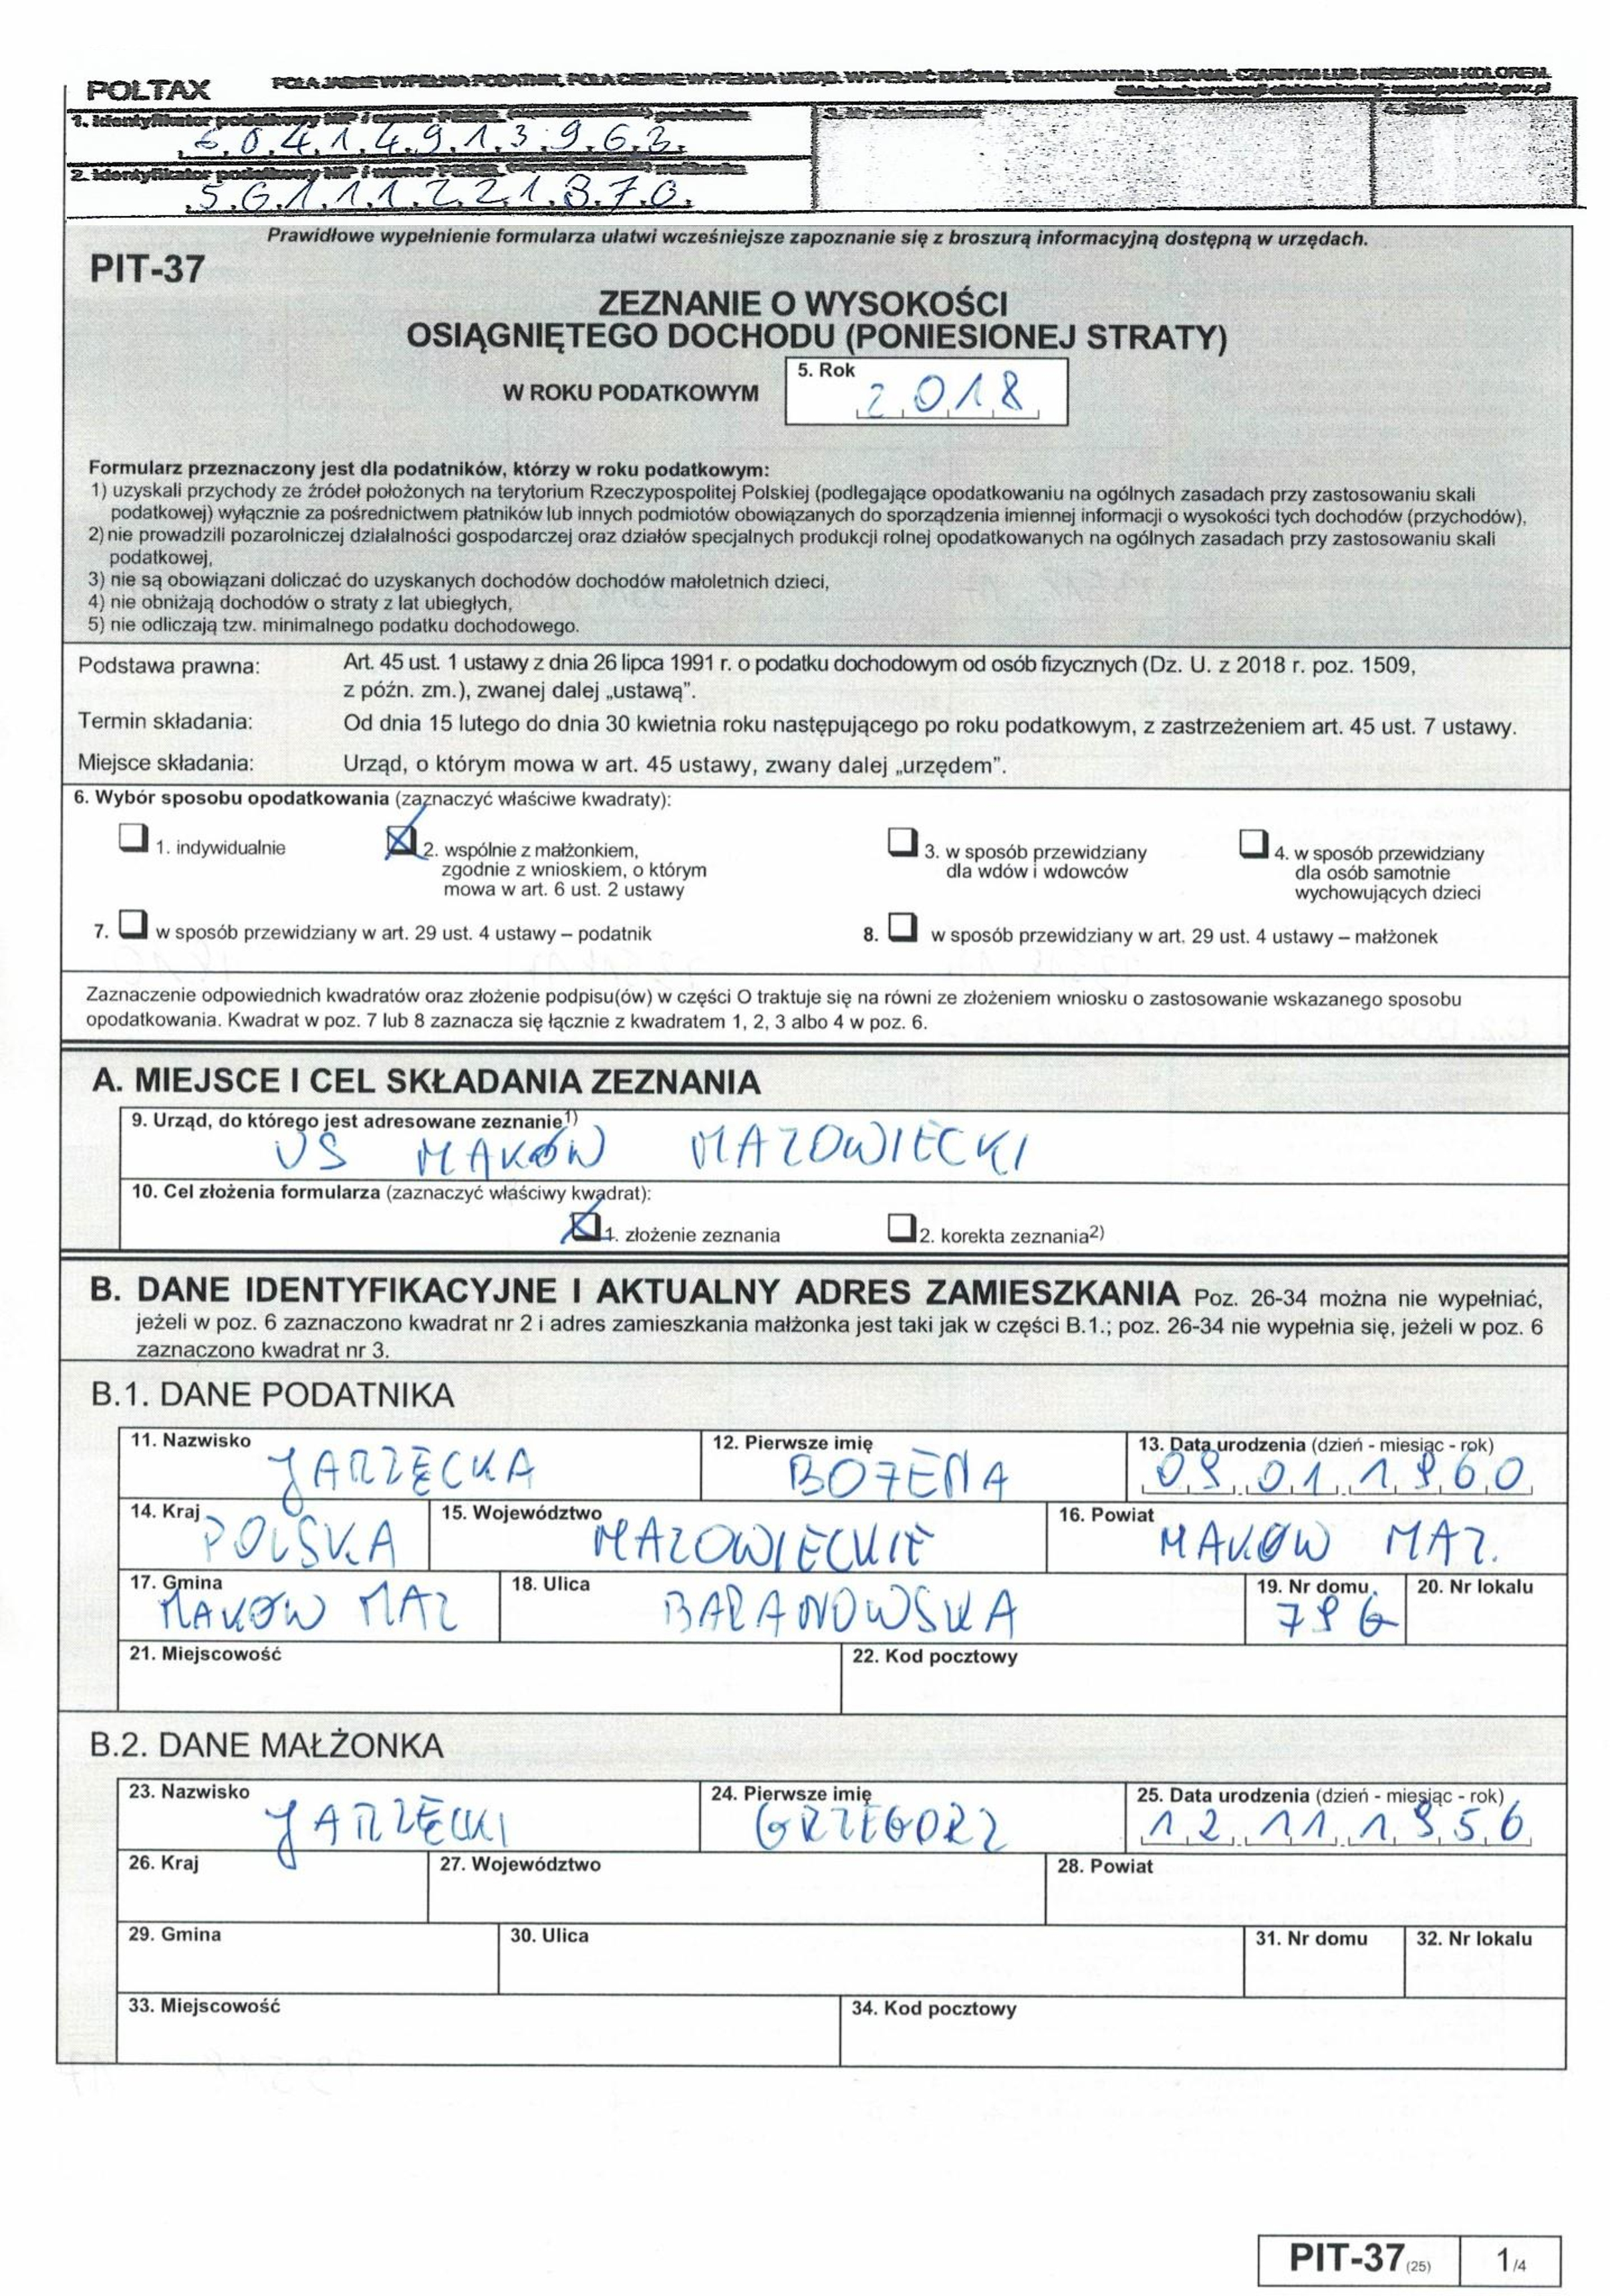 POLTAX
POLA JASNE WYPEŁNIA PODATNIK, POLA CIEMNE WYPEŁNIA URZĄD. WYPEŁNIĆ DUŻYMI, DRUKOWANYMI LITERAMI, CZARNYM LUB NIEBIESKIM KOLOREM.
Składanie w wersji elektronicznej: www.podatki.gov.pl
1. Identyfikator podatkowy NIP / numer PESEL podatnika
60414913963
2. Identyfikator podatkowy NIP / numer PESEL małżonka
56111221870
3. Nr dokumentu
4. Status
Prawidłowe wypełnienie formularza ułatwi wcześniejsze zapoznanie się z broszurą informacyjną dostępną w urzędach.
PIT-37
ZEZNANIE O WYSOKOŚCI
OSIĄGNIĘTEGO DOCHODU (PONIESIONEJ STRATY)
W ROKU PODATKOWYM
5. Rok
2018
Formularz przeznaczony jest dla podatników, którzy w roku podatkowym:
1) uzyskali przychody ze źródeł położonych na terytorium Rzeczypospolitej Polskiej (podlegające opodatkowaniu na ogólnych zasadach przy zastosowaniu skali
podatkowej) wyłącznie za pośrednictwem płatników lub innych podmiotów obowiązanych do sporządzenia imiennej informacji o wysokości tych dochodów (przychodów),
2) nie prowadzili pozarolniczej działalności gospodarczej oraz działów specjalnych produkcji rolnej opodatkowanych na ogólnych zasadach przy zastosowaniu skali
podatkowej,
3) nie są obowiązani doliczać do uzyskanych dochodów dochodów małoletnich dzieci,
4) nie obniżają dochodów o straty z lat ubiegłych,
5) nie odliczają tzw. minimalnego podatku dochodowego.
Podstawa prawna: Art. 45 ust. 1 ustawy z dnia 26 lipca 1991 r. o podatku dochodowym od osób fizycznych (Dz. U. z 2018 r. poz. 1509,
z późn. zm.), zwanej dalej „ustawą”.
Termin składania: Od dnia 15 lutego do dnia 30 kwietnia roku następującego po roku podatkowym, z zastrzeżeniem art. 45 ust. 7 ustawy.
Miejsce składania: Urząd, o którym mowa w art. 45 ustawy, zwany dalej „urzędem”.
6. Wybór sposobu opodatkowania (zaznaczyć właściwe kwadraty):
1. indywidualnie
2. wspólnie z małżonkiem,
zgodnie z wnioskiem, o którym
mowa w art. 6 ust. 2 ustawy
3. w sposób przewidziany
dla wdów i wdowców
4. w sposób przewidziany
dla osób samotnie
wychowujących dzieci
7. w sposób przewidziany w art. 29 ust. 4 ustawy – podatnik
8. w sposób przewidziany w art. 29 ust. 4 ustawy – małżonek
Zaznaczenie odpowiednich kwadratów oraz złożenie podpisu(ów) w części O traktuje się na równi ze złożeniem wniosku o zastosowanie wskazanego sposobu
opodatkowania. Kwadrat w poz. 7 lub 8 zaznacza się łącznie z kwadratem 1, 2, 3 albo 4 w poz. 6.
A. MIEJSCE I CEL SKŁADANIA ZEZNANIA
9. Urząd, do którego jest adresowane zeznanie1)
US MAKÓW MAZOWIECKI
10. Cel złożenia formularza (zaznaczyć właściwy kwadrat):
1. złożenie zeznania
2. korekta zeznania2)
B. DANE IDENTYFIKACYJNE I AKTUALNY ADRES ZAMIESZKANIA Poz. 26-34 można nie wypełniać,
jeżeli w poz. 6 zaznaczono kwadrat nr 2 i adres zamieszkania małżonka jest taki jak w części B.1.; poz. 26-34 nie wypełnia się, jeżeli w poz. 6
zaznaczono kwadrat nr 3.
B.1. DANE PODATNIKA
11. Nazwisko
JARZĘCKA
12. Pierwsze imię
BOŻENA
13. Data urodzenia (dzień - miesiąc - rok)
09.01.1960
14. Kraj
POLSKA
15. Województwo
MAZOWIECKIE
16. Powiat
MAKÓW MAZ.
17. Gmina
MAKÓW MAZ
18. Ulica
BARANOWSKA
19. Nr domu
79G
20. Nr lokalu
21. Miejscowość
22. Kod pocztowy
B.2. DANE MAŁŻONKA
23. Nazwisko
JARZĘCKI
24. Pierwsze imię
GRZEGORZ
25. Data urodzenia (dzień - miesiąc - rok)
12.11.1956
26. Kraj
27. Województwo
28. Powiat
29. Gmina
30. Ulica
31. Nr domu
32. Nr lokalu
33. Miejscowość
34. Kod pocztowy
PIT-37(25) 1/4